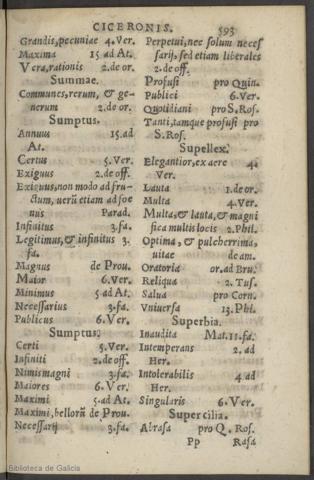 CICERONIS. 593
Grandis, pecuniae 4. Ver.
Maxima 15 ad At.
Vera, rationis 2. de or.
Summae.
Communes, rerum, & ge-
nerum 2. de or.
Sumptus.
Annuus 15. ad
At.
Certus 5. Ver.
Exiguus 2. de off.
Exiguus, non modo ad fru-
ctum, verũ etiam ad foe
nus Parad.
Infinitus 3. fa.
Legitimus, & infinitus 3.
fa.
Magnus de Prou.
Maior 6. Ver.
Minimus 5 ad At.
Necessarius 3. fa.
Publicus 6. Ver.
Sumptus.
Certi 5. Ver.
Infiniti 2. de off.
Nimis magni 3. fa.
Maiores 6. Ver.
Maximi 5. ad At.
Maximi, bellorũ de Prou.
Necessarij 3. fa.
Perpetui, nec solum neces
sarij, sed etiam liberales
2. de off.
Profusi pro Quin.
Publici 6. Ver.
Quotidiani pro S. Ros.
Tanti, tamque profusi pro
S. Ros.
Supellex.
Elegantior, ex aere 4.
Ver.
Lauta 1. de or.
Multa 4. Ver.
Multa, & lauta, & magni
fica multis locis 2. Phil.
Optima, & pulcherrima,
uitae de am.
Oratoria or. ad Bru.
Reliqua 2. Tus.
Salua pro Corn.
Vniuersa 13. Phi.
Superbia.
Inaudita Mat. 11. fa.
Intemperans 2. ad
Her.
Intolerabilis 4. ad
Her.
Singularis 6. Ver.
Supercilia.
Abrasa pro Q. Ros.
Pp Rasa
Biblioteca de Galicia